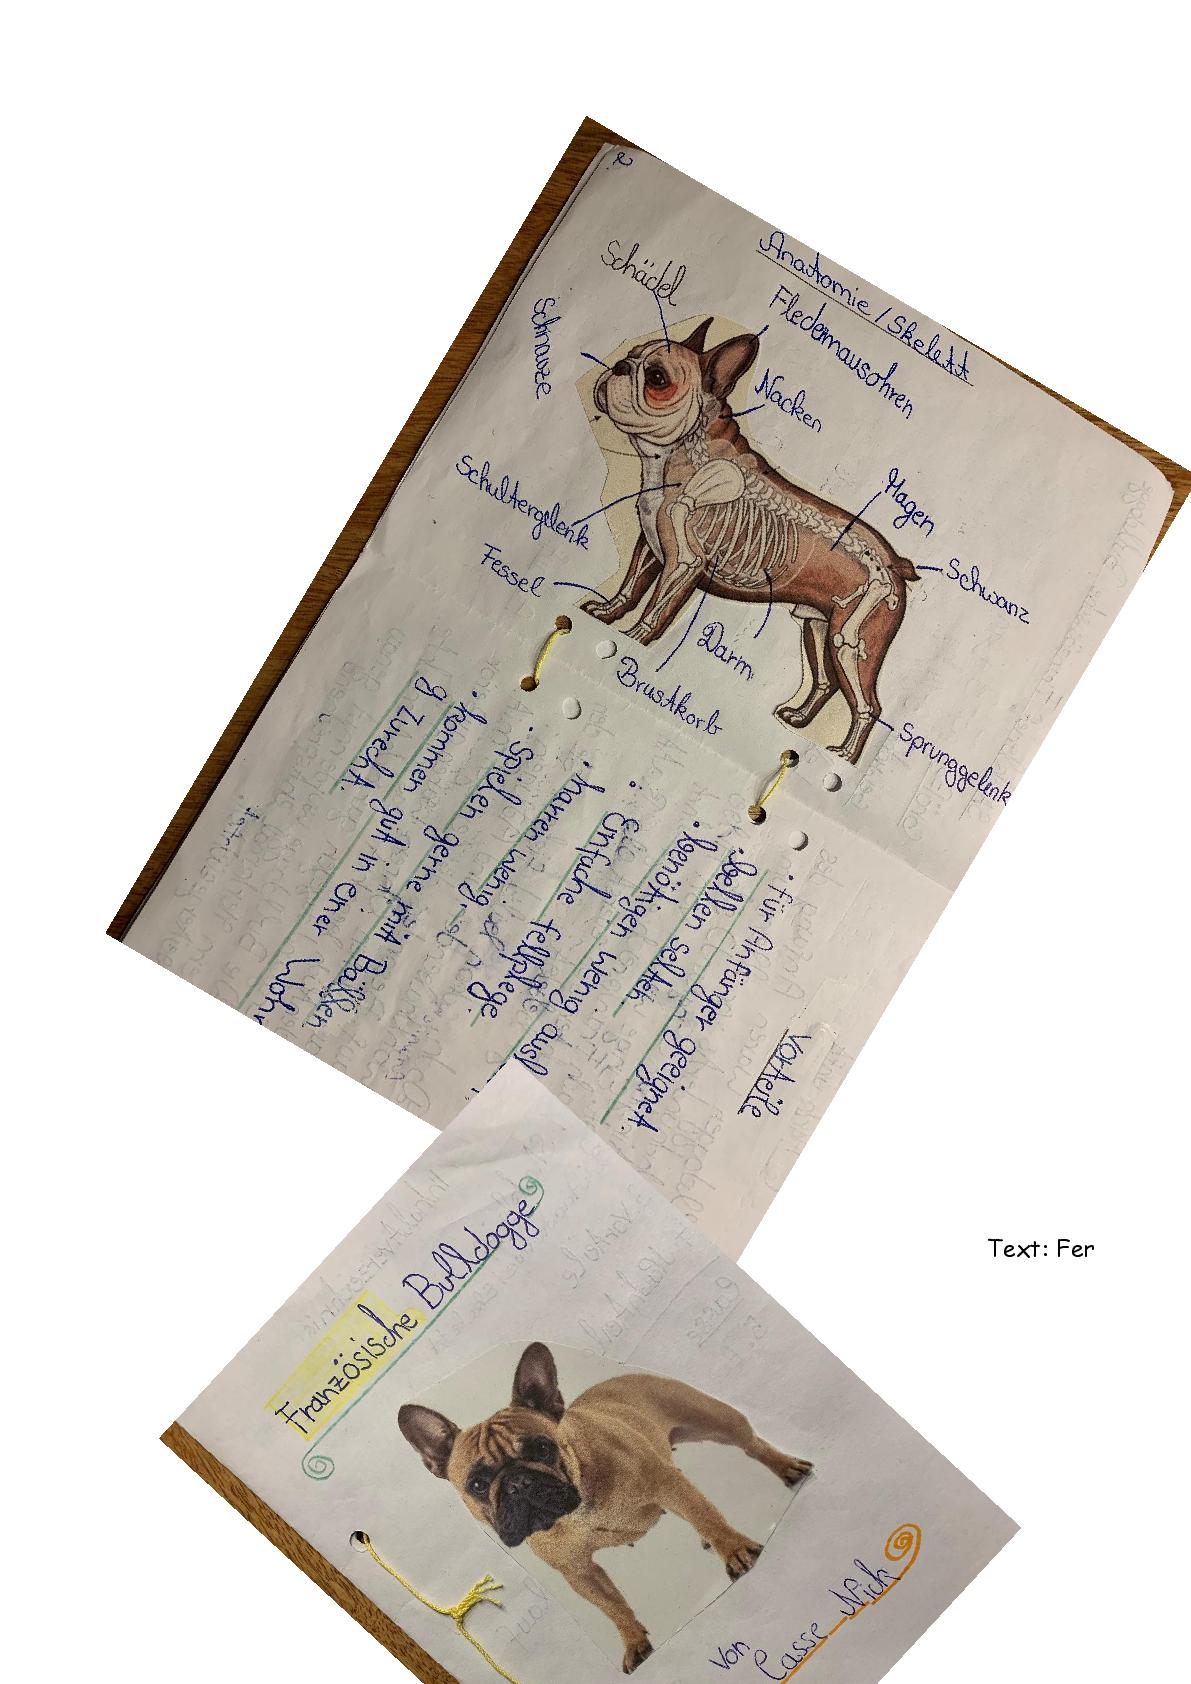 2
Anatomie / Skelett
Schädel
Fledermausohren
Schnauze
Nacken
Schultergelenk
Magen
Fessel
Schwanz
Darm
Brustkorb
Sprunggelenk
Vorteile
• für Anfänger geeignet.
• bellen selten.
• benötigen wenig ausl
• Einfache Fellplege
• harren wenig
• Spielen gerne mit Bällen
• kommen gut in einer Wohn
g zurecht.
Französische Bulldogge
Von
Casse Nick
Text: Fer